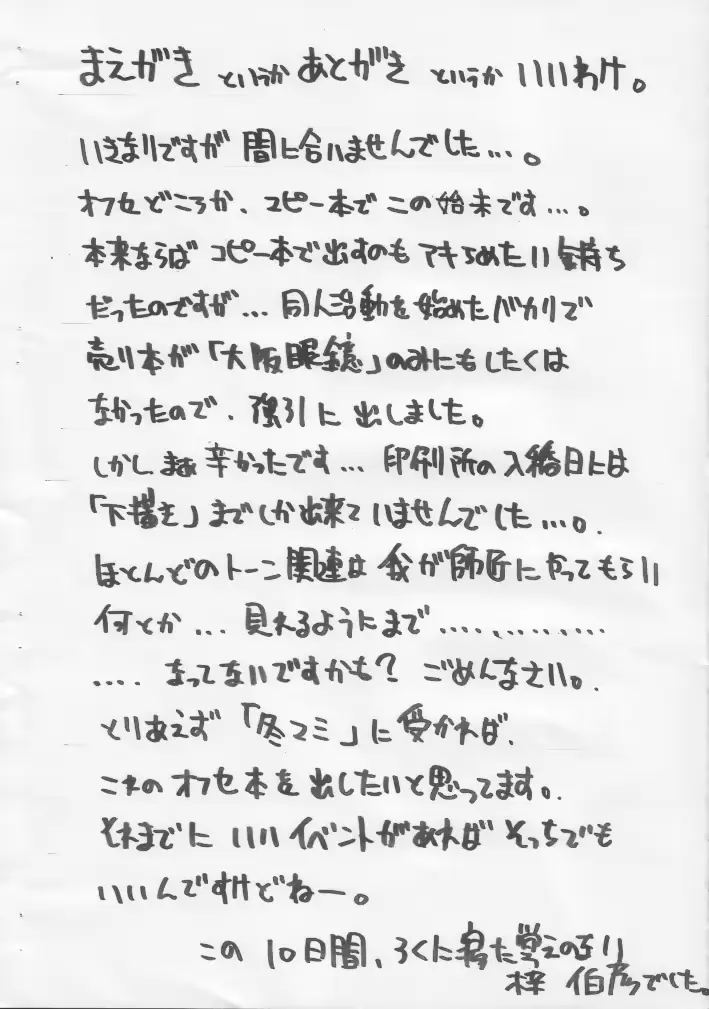 まえがき というか あとがき というか いいわけ。
いきなりですが 間に合いませんでした…。
オフセどころか、コピー本で この始末です…。
本来ならば コピー本で出すのも アキらめたい気持ち
だったのですが… 同人活動を始めたバカリで
売り本が「大阪眼鏡」のみにもしたくは
なかったので、強引に 出しました。
しかしまぁ 辛かったです… 印刷所の入稿日には
「下描き」までしか出来ていませんでした…。
ほとんどのトーン関連は 我が師匠に やってもらい
何とか … 見れるようにまで ……………
…. なってないですかも? ごめんなさい。
とりあえず 「冬コミ」に 受かれば、
これの オフセ本を 出したいと思ってます。
それまでに いいイベントがあれば そっちでも
いいんですけどねー。
この 10日間、ろくに寝た覚えのない
梓 伯 でした。